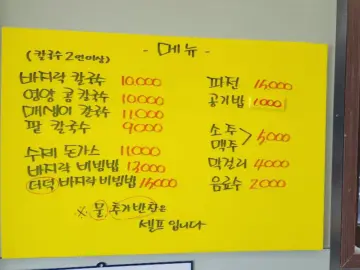 - 메뉴 -
(칼국수 2인이상)
바지락 칼국수 10,000
영양 콩 칼국수 10,000
매생이 칼국수 11,000
팥 칼국수 9000
수제 돈가스 11,000
바지락 비빔밥 13,000
더덕 바지락 비빔밥 15,000
파전 15,000
공기밥 1000
소주 > 5,000
맥주
막걸리 4000
음료수 2000
※ 물 추가반찬은
셀프입니다